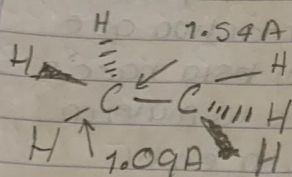 H 1.54A
H H
C — C H
H 1.09A H